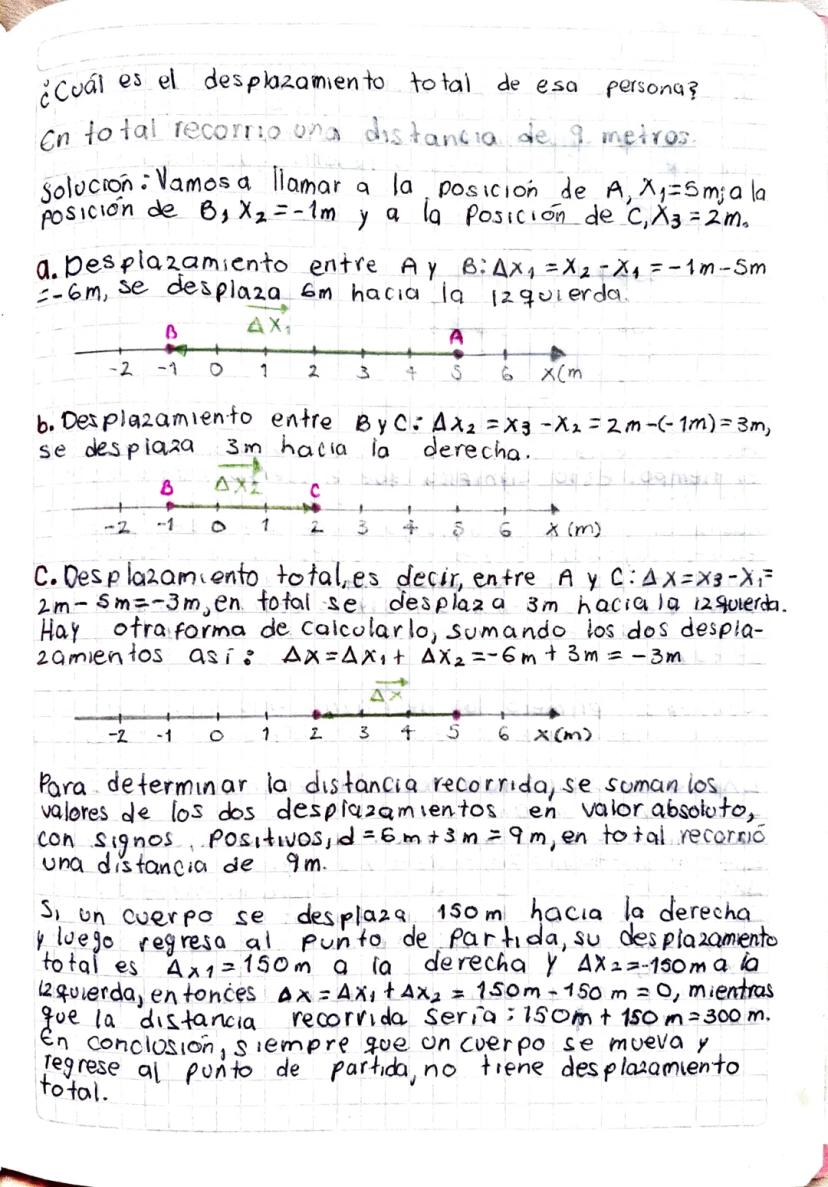 ¿Cuál es el desplazamiento total de esa persona?
En total recorrio una distancia de 9 metros.
Solución: Vamos a llamar a la posición de A, X₁=5m; a la
posición de B, X₂=-1m y a la Posición de C, X₃=2m.
a. Desplazamiento entre A y B: ΔX₁=X₂-X₁=-1m-5m
=-6m, se desplaza 6m hacia la izquierda.
ΔX₁
B A
-2 -1 0 1 2 3 4 5 6 X(m
b. Desplazamiento entre B y C: ΔX₂=X₃-X₂=2m-(-1m)=3m,
se desplaza 3m hacia la derecha.
B ΔX₂ C
-2 -1 0 1 2 3 4 5 6 X(m)
C. Desplazamiento total, es decir, entre A y C: ΔX=X₃-X₁=
2m-5m=-3m, en total se desplaza 3m hacia la izquierda.
Hay otra forma de calcularlo, sumando los dos despla-
zamientos así: ΔX=ΔX₁+ΔX₂=-6m+3m=-3m
ΔX
-2 -1 0 1 2 3 4 5 6 X(m)
Para determinar la distancia recorrida, se suman los
valores de los dos desplazamientos en valor absoluto,
con signos Positivos, d=6m+3m=9m, en total recorrió
una distancia de 9m.
Si un cuerpo se desplaza 150m hacia la derecha
y luego regresa al punto de partida, su desplazamiento
total es ΔX1=150m a la derecha y ΔX2=-150m a la
izquierda, entonces ΔX=ΔX₁+ΔX₂=150m-150m=0, mientras
que la distancia recorrida sería: 150m+150m=300m.
En conclusión, siempre que un cuerpo se mueva y
regrese al punto de partida, no tiene desplazamiento
total.